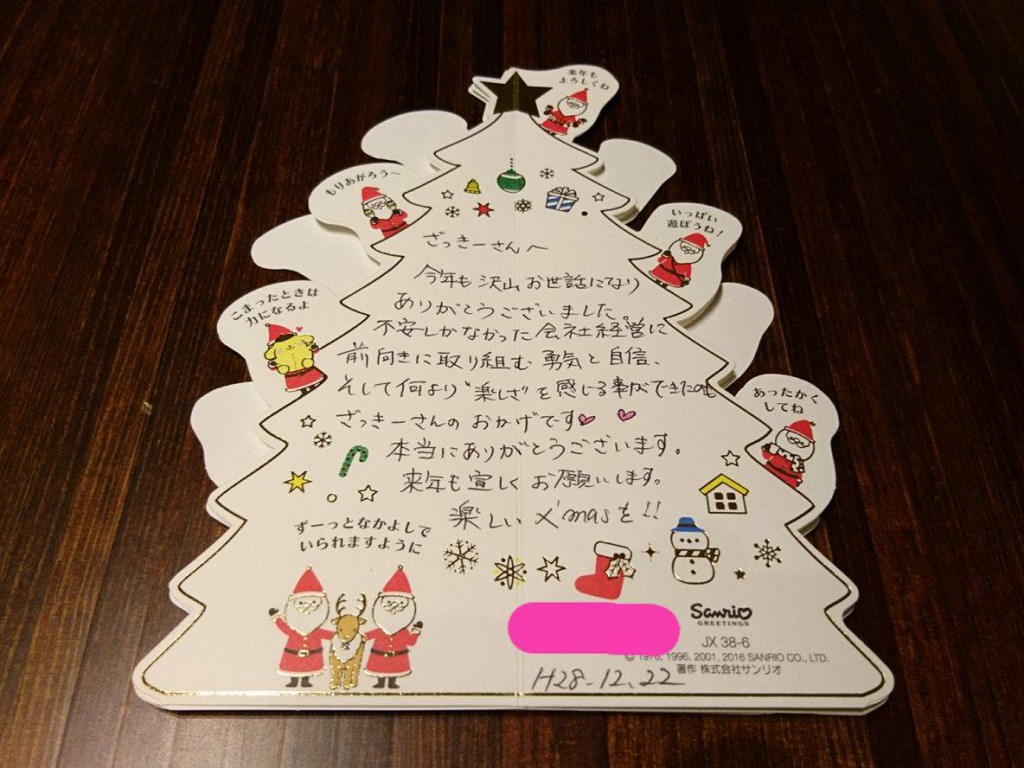 来年も
よろしくね
もりあがろう〜
いっぱい
遊ぼうね!
ざっきーさんへ
今年も沢山お世話になり
ありがとうございました。
こまったときは
力になるよ
不安しかなかった会社経営に
前向きに取り組む勇気と自信、
そして何より"楽しさ"を感じる事ができたのも
あったかく
してね
ざっきーさんのおかげです
本当にありがとうございます。
来年も宜しくお願いします。
楽しいX'masを!!
ずーっとなかよしで
いられますように
Sanrio
GREETINGS
JX 38-6
© 1976, 1996, 2001, 2016 SANRIO CO., LTD.
著作 株式会社サンリオ
H28.12.22